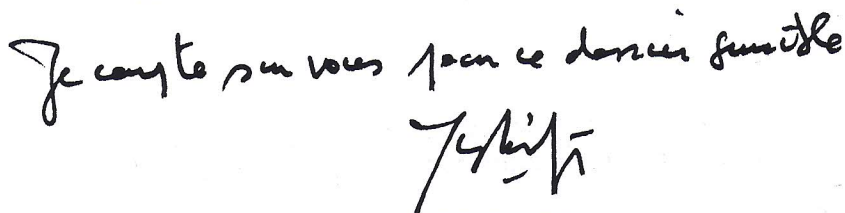 Je compte sur vous pour ce dossier sensible